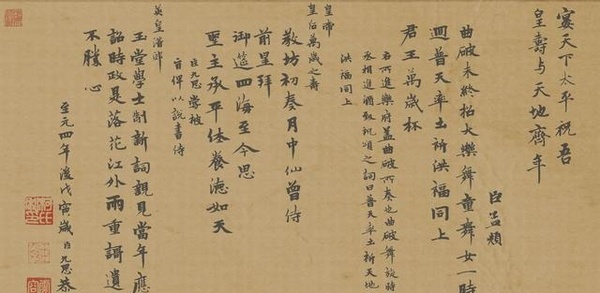 宴天下太平祝吾
皇壽与天地齊年
臣孟頫
曲破未終拍大樂舞童舞女一時
迴普天率土祈洪福同上
君王萬歲杯
右所進樂府蓋曲破所奏也曲破舞旋時
丞相進酒教坊頌之詞曰普天率土祈天地
洪福同上
皇帝
皇后萬歲之壽
教坊初奏月中仙曾侍
前星拜
御筵四海至今思
聖主承平休養德如天
臣九思嘗被
旨俾以說書侍
英皇潛邸
玉堂學士制新詞親見當年應
詔時政是落花江外雨重謌遺
不勝心
至元四年後戊寅歲臣九思恭